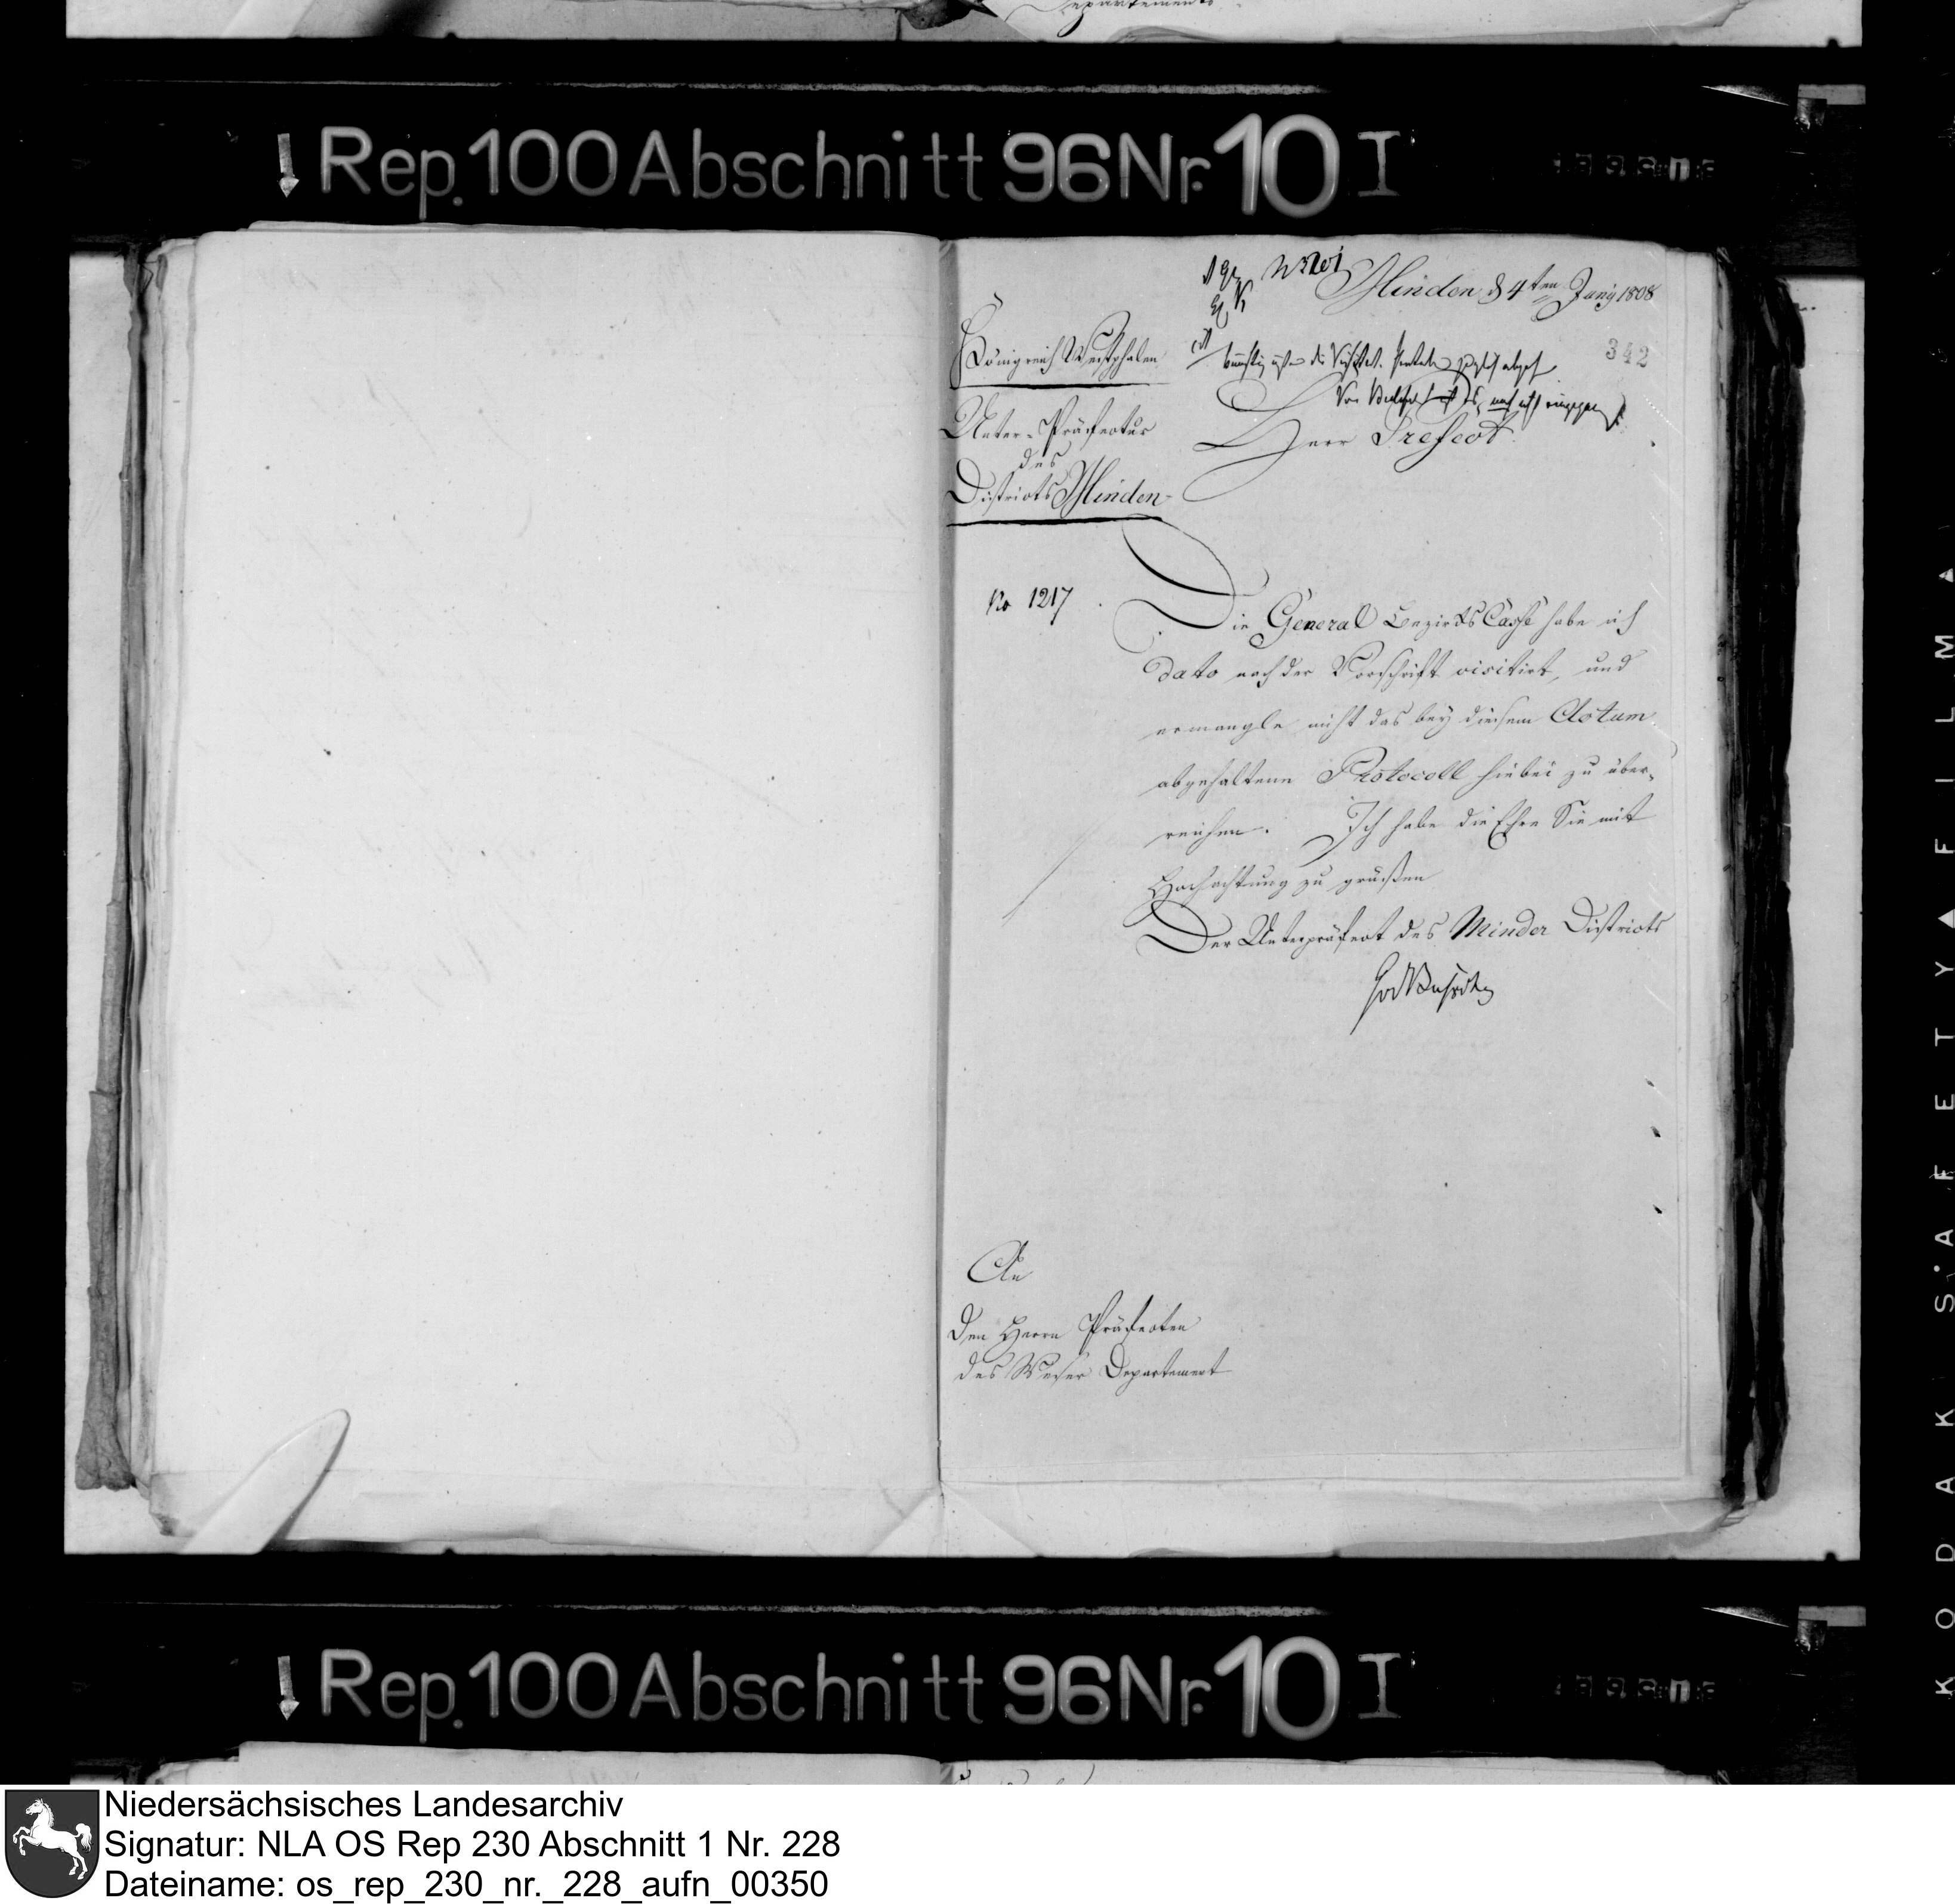 Departements
Rep. 100 Abschnitt 96 Nr. 10 I
Minden d 4ten Juny 1808
342
Königreich Westphalen
Unter-Präfectur
des
Districts Minden
Herr Prefect
No 1217
Die General Bezirks Casse habe ich
dato nach der Vorschrift visitirt, und
ermangle nicht das bey diesem Actum
abgehaltene Protocoll hiebei zu über-
reichen. Ich habe die Ehre Sie mit
Hochachtung zu grüßen
Der Unterpräfect des Minder Districts
An
den Herrn Präfecten
des Weser Departement
Rep. 100 Abschnitt 96 Nr. 10 I
KODAK SAFETY FILM
Niedersächsisches Landesarchiv
Signatur: NLA OS Rep 230 Abschnitt 1 Nr. 228
Dateiname: os_rep_230_nr._228_aufn_00350